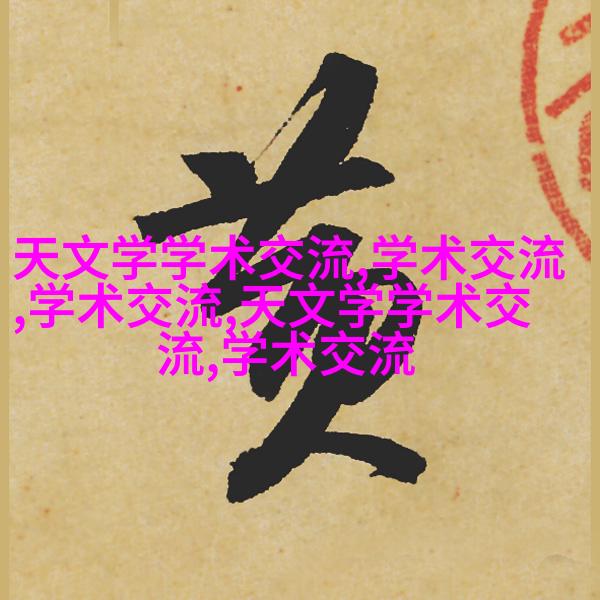 黄
天文学学术交流,学术交流
,学术交流,天文学学术交
流,学术交流